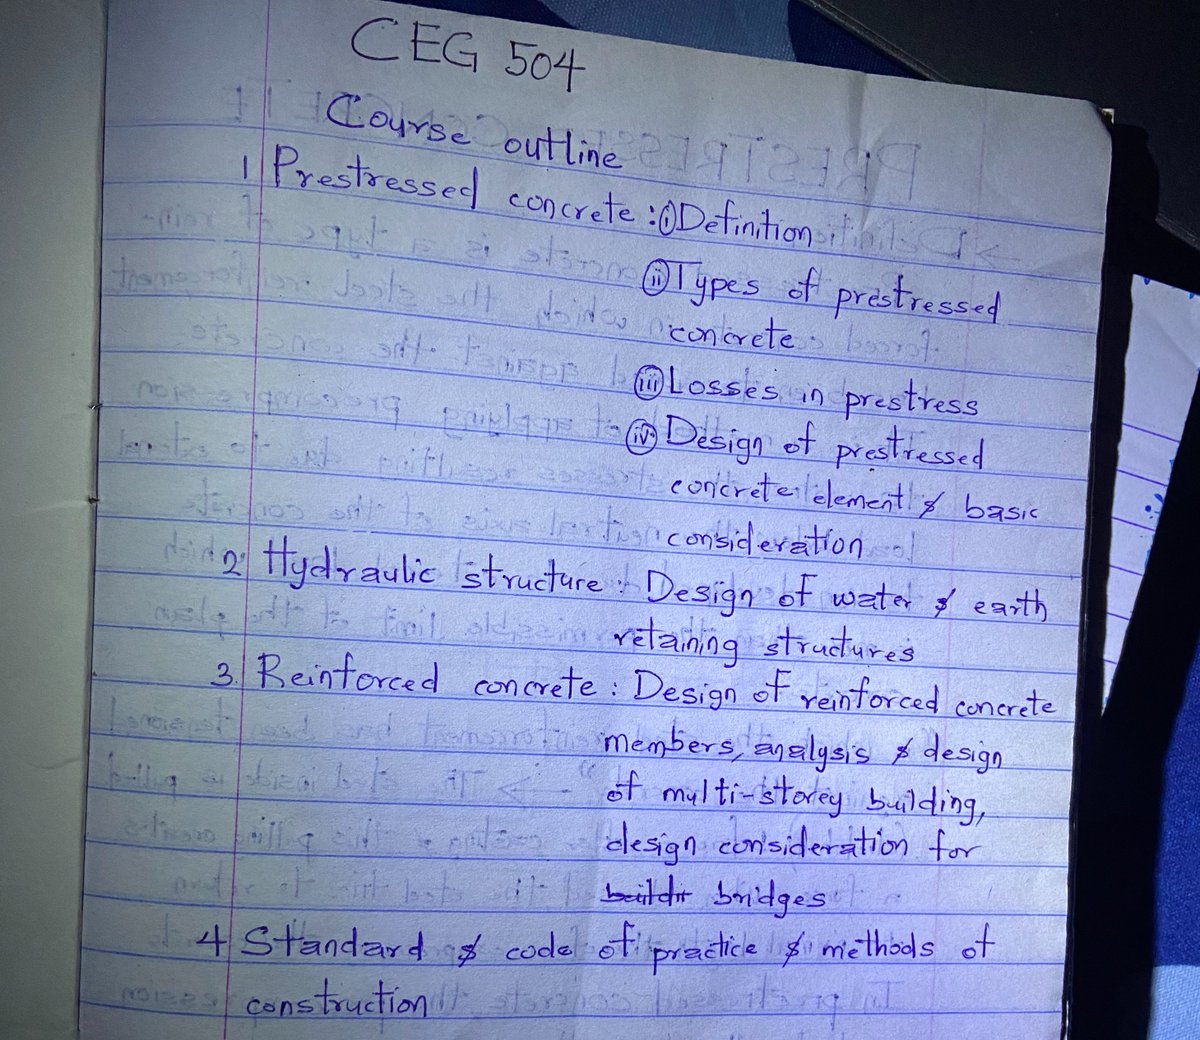 CEG 504
Course outline
1 Prestressed concrete : (i) Definition
(ii) Types of prestressed
concrete
(iii) Losses in prestress
(iv) Design of prestressed
concrete element & basic
consideration
2 Hydraulic structure : Design of water & earth
retaining structures
3. Reinforced concrete : Design of reinforced concrete
members, analysis & design
of multi-storey building,
design consideration for
bridges
4 Standard & code of practice & methods of
construction